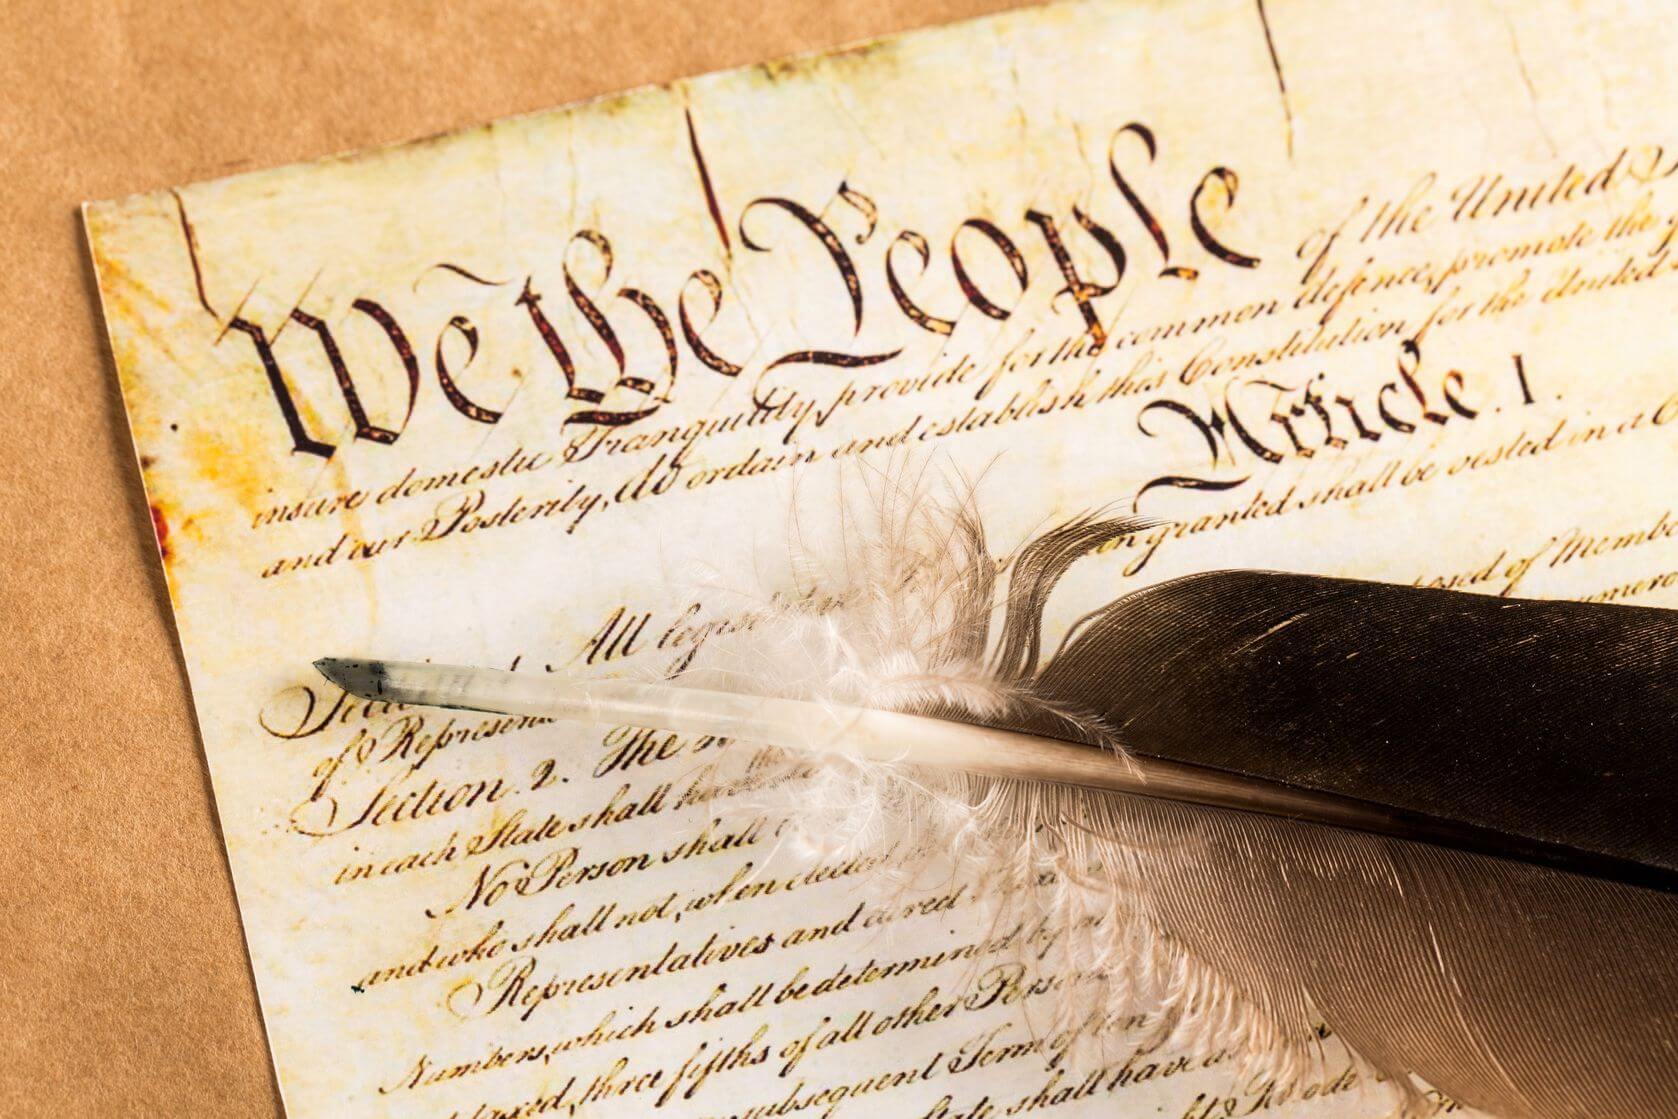 We the People of the United
insure domestic Tranquility, provide for the common defence, promote the
and our Posterity, do ordain and establish this Constitution for the United
Article. I.
All legislative granted shall be vested in a
of
Section. 2. The of
in each State shall
No Person shall
and who shall not, when elected
Representatives and direct
Numbers, which shall be determined by
three fifths of all other Persons
subsequent Term of ten
State shall have